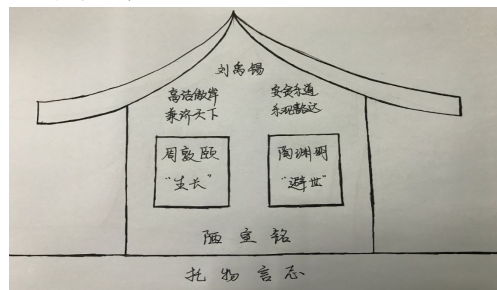 刘禹锡
高洁傲岸
兼济天下
安贫乐道
乐观豁达
周敦颐
“生长”
陶渊明
“避世”
陋室铭
托物言志